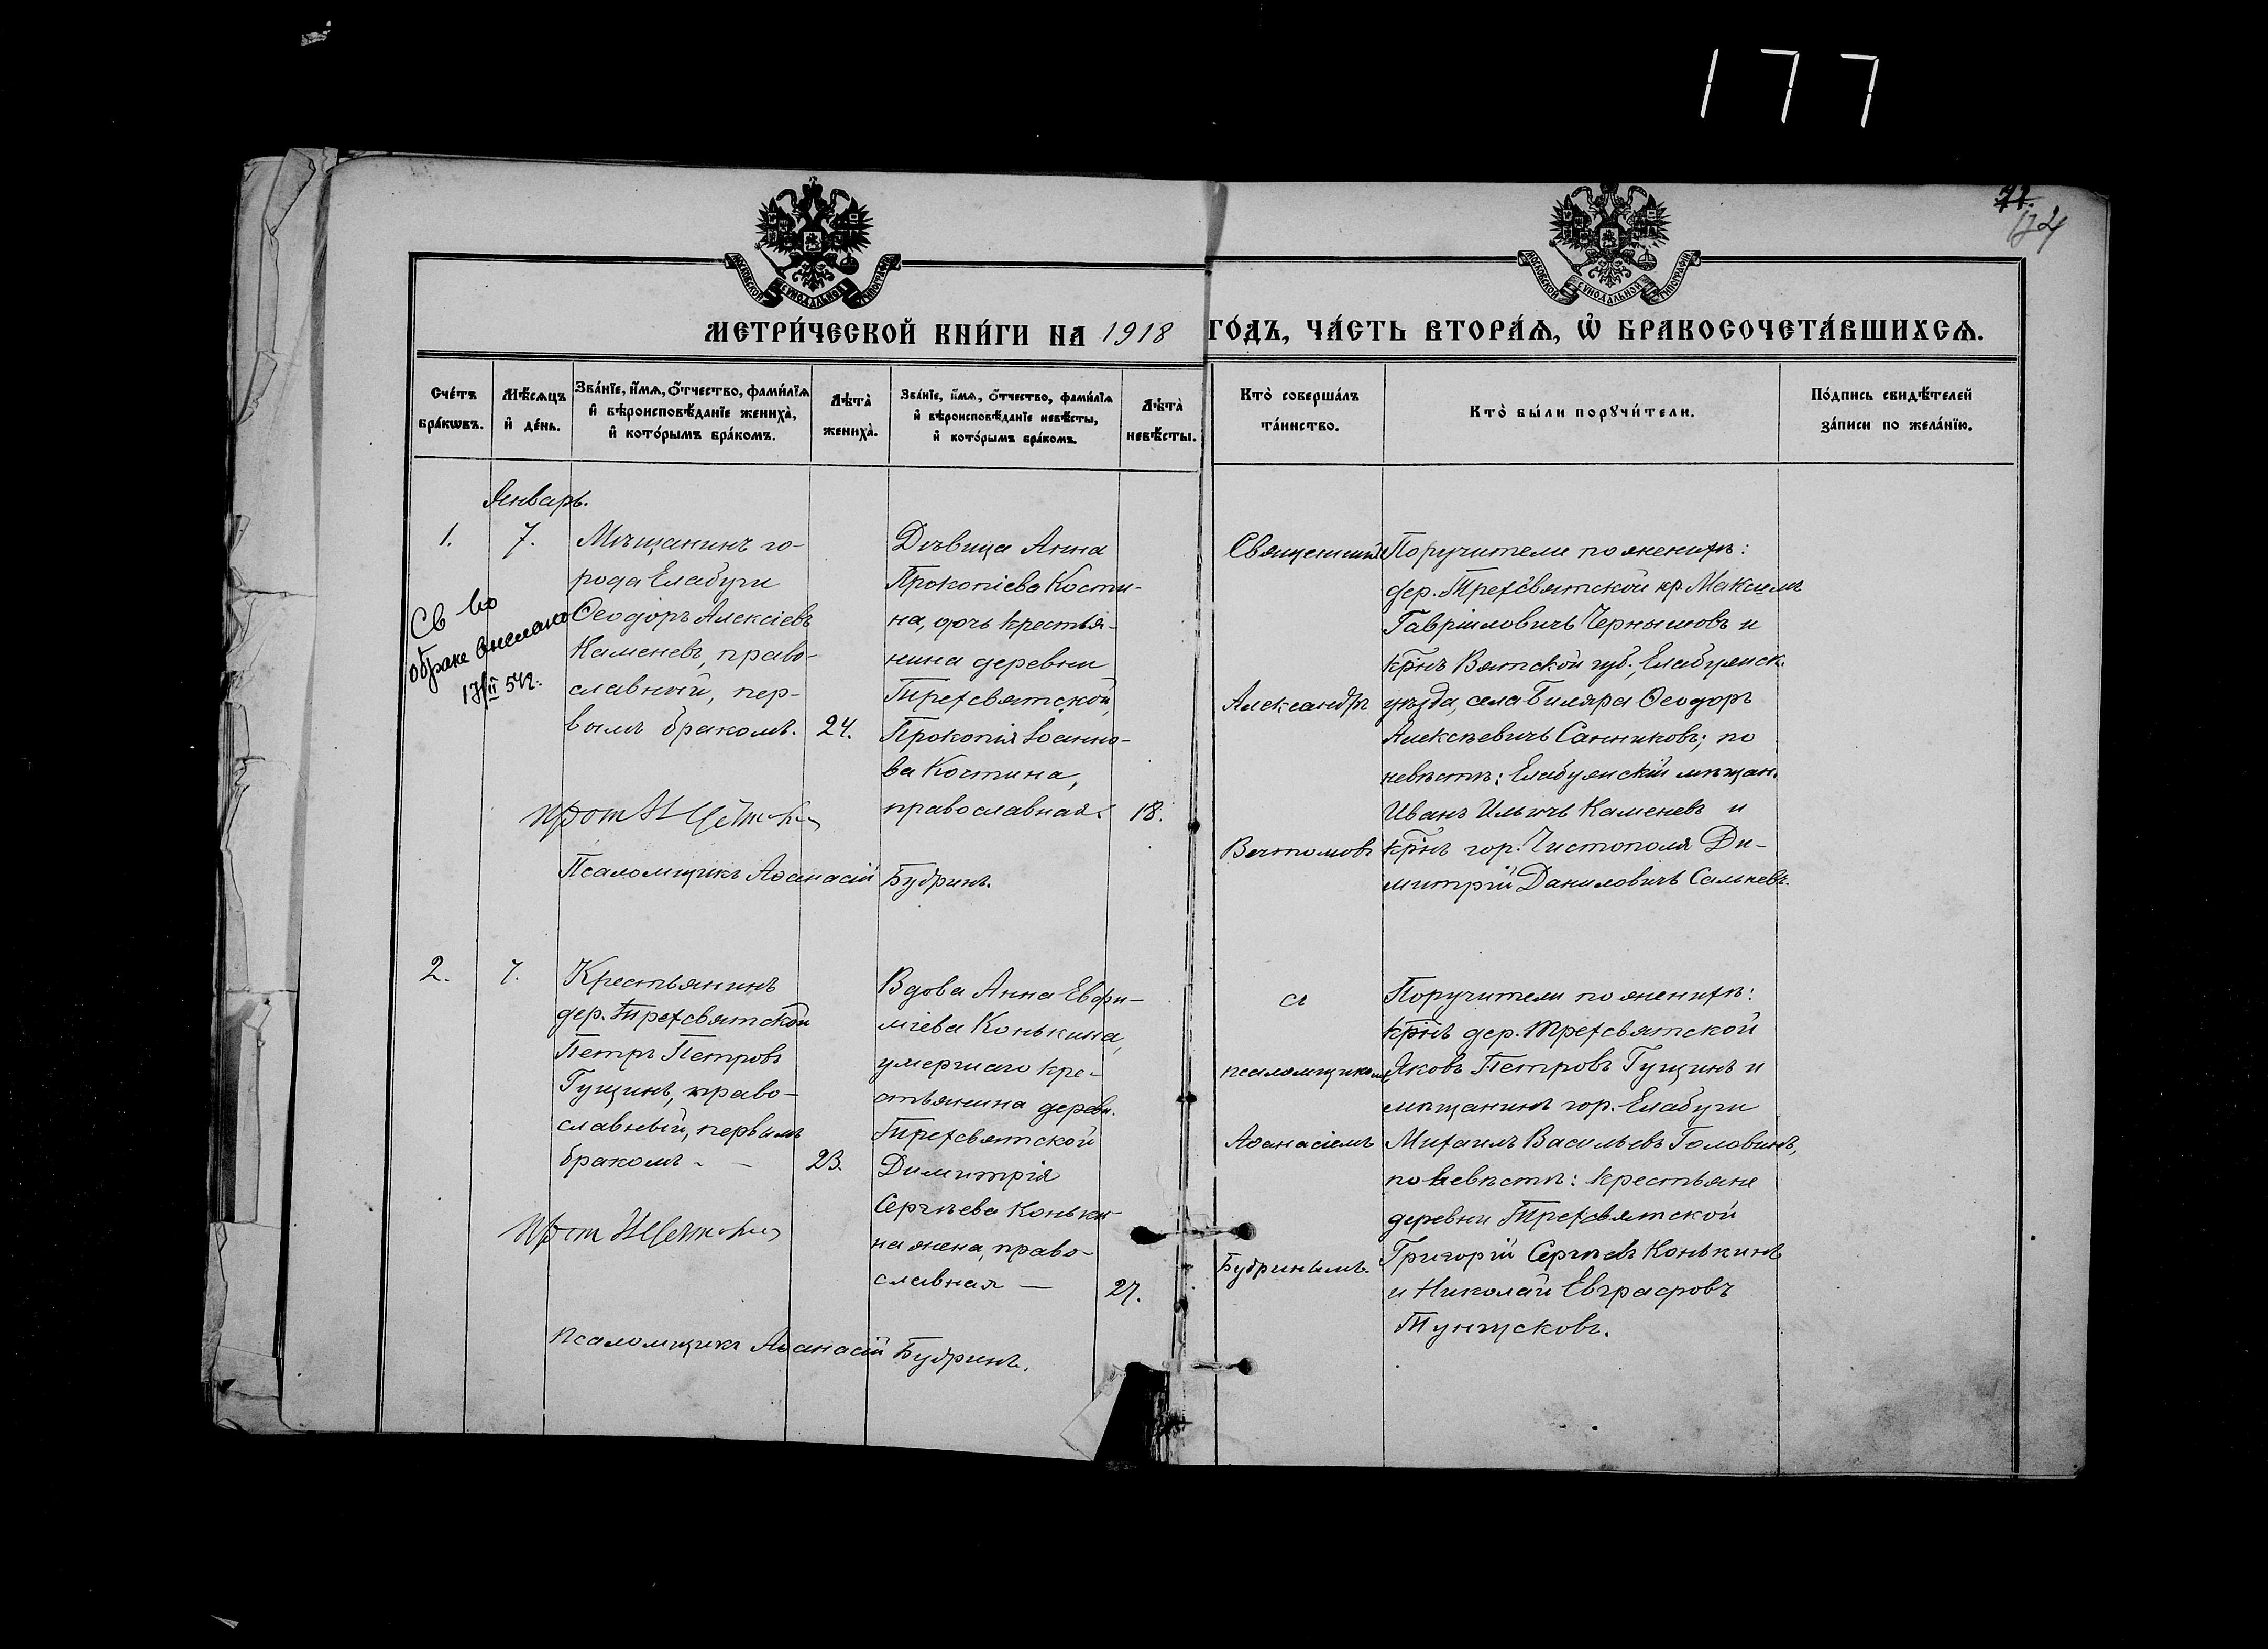 177
71.
МОСКОВСКОЙ СѴНОДАЛЬНОЙ ТИПОГРАФІИ
МОСКОВСКОЙ СѴНОДАЛЬНОЙ ТИПОГРАФІИ
МЕТРИ́ЧЕСКОЙ КНИ́ГИ НА 1918 ГО́ДЪ, ЧА́СТЬ ВТОРА́Ѧ, Ѡ҆ БРАКОСОЧЕТА́ВШИХСѦ.
Сче́тъ
бра́кѡвъ.
Мѣ́сѧцъ
и҆ де́нь.
Зва́нїе, и҆́мѧ, ѻ҆́тчество, фами́лїѧ
и҆ вѣроисповѣ́данїе жениха̀,
и҆ кото́рымъ бра́комъ.
Лѣта̀
жениха̀.
Зва́нїе, и҆́мѧ, ѻ҆́тчество, фами́лїѧ
и҆ вѣроисповѣ́данїе невѣ́сты,
и҆ кото́рымъ бра́комъ.
Лѣта̀
невѣ́сты.
Кто̀ соверша́лъ
та́инство.
Кто̀ бы́ли порꙋчи́тели.
По́дпись свидѣ́телей
за́писи по жела́нїю.
Январь.
1.
7.
Мѣщанинъ го-
рода Елабуги
Ѳеодоръ Алексіевъ
Каменевъ, право-
славный, пер-
вымъ бракомъ. 24.
Св во
о браке
17/II 54г.
Дѣвица Анна
Прокопіева Кости-
на, дочь крестья-
нина деревни
Трехсвятской,
Прокопія Іоанно-
ва Костина,
православная. 18.
Прот Н
Псаломщикъ Аѳанасій Будринъ.
Священникъ
Александръ
Вечтомовъ
Поручители по женихѣ:
дер. Трехсвятской кр. Максимъ
Гавріиловичъ Чернышовъ и
крнъ Вятской губ., Елабужск.
уѣзда, села Биляра Ѳеодоръ
Алексѣевичъ Санниковъ; по
невѣстѣ: Елабужскій мѣщан.
Иванъ Ильичъ Каменевъ и
крнъ гор. Чистополя Ди-
митрій Даниловичъ
2.
7.
Крестьянинъ
дер. Трехсвятской
Петръ Петровъ
Гущинъ, право-
славный, первымъ
бракомъ - — 23.
Вдова Анна Евфи-
міева Конькина,
умершаго кре-
стьянина деревн.
Трехсвятской
Димитрія
Сергѣева Коньки-
на жена, право-
славная — 27.
Прот Н
Псаломщикъ Аѳанасій Будринъ.
съ
псаломщикомъ
Аѳанасіемъ
Будринымъ.
Поручители по женихѣ:
крнъ дер. Трехсвятской
Яковъ Петровъ Гущинъ и
мѣщанинъ гор. Елабуги
Михаилъ Васильевъ Головинъ,
по невѣстѣ: крестьяне
деревни Трехсвятской
Григорій Сергѣевъ Конькинъ
и Николай Евграфовъ
Тунгусковъ.